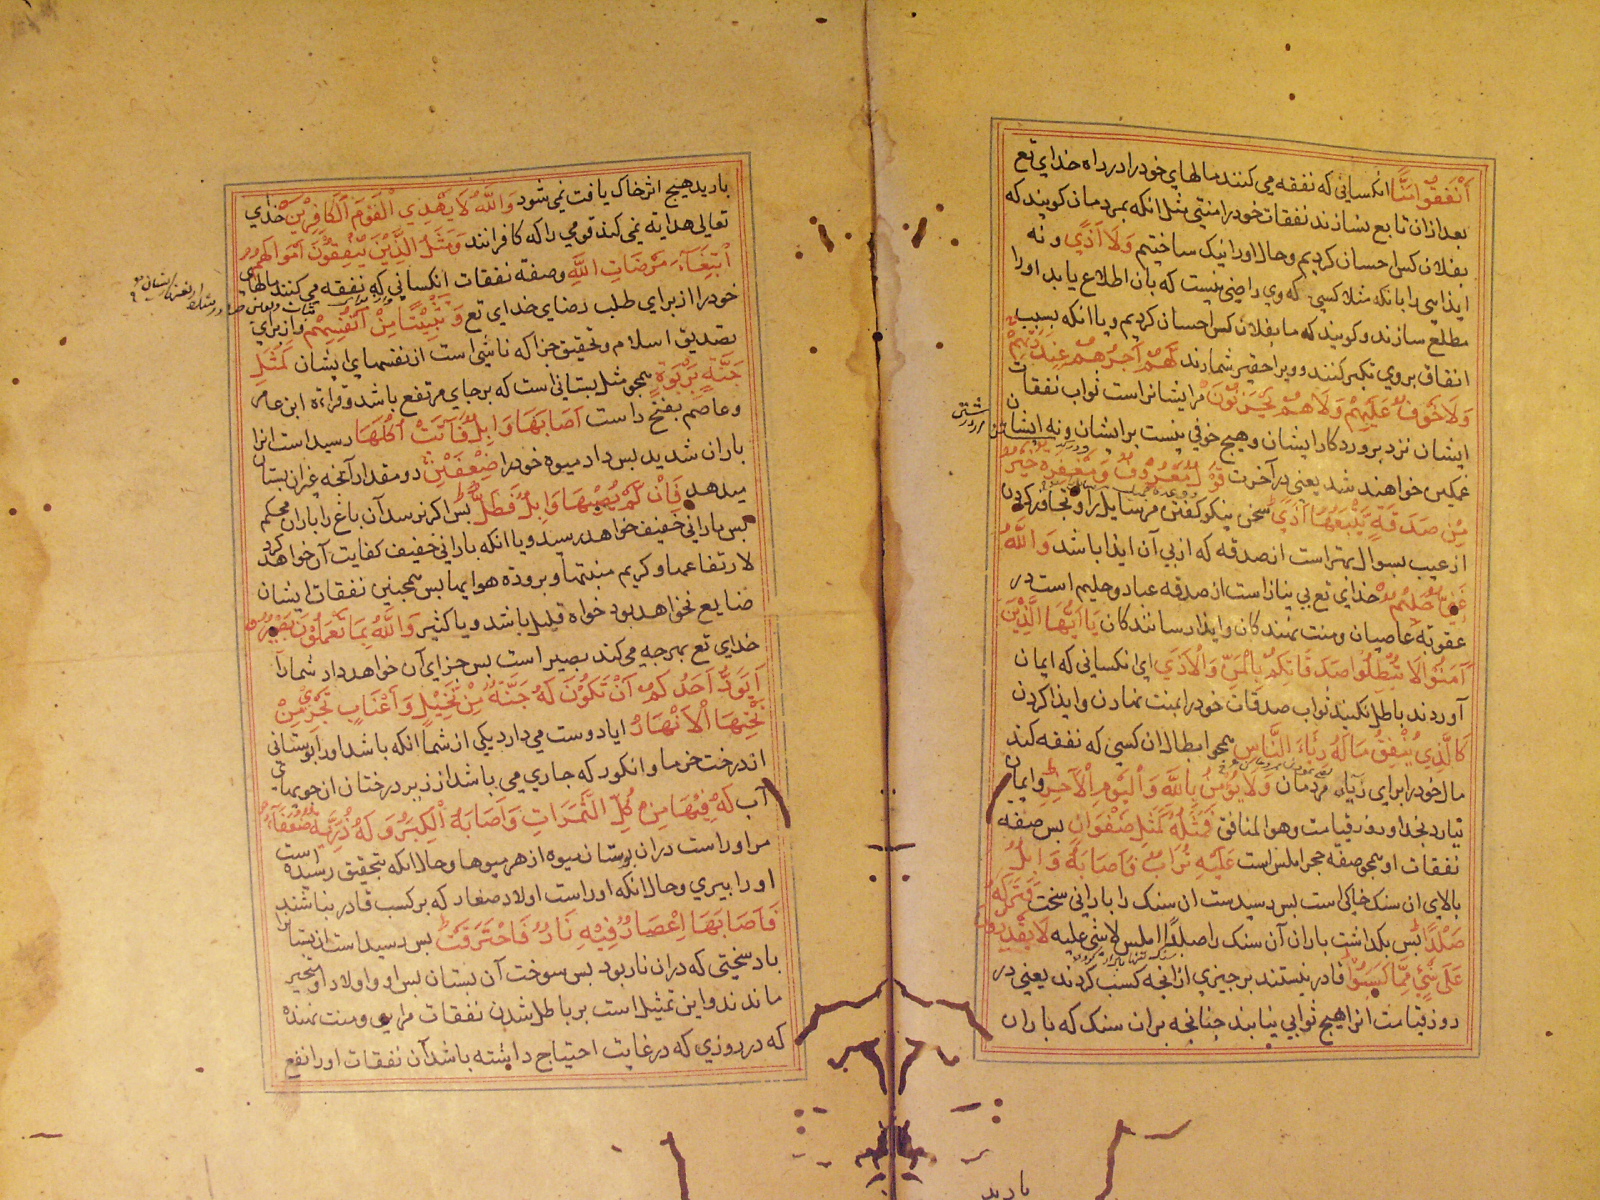 أَنْفَقُوا مَنًّا انكساني كه نفقه مي كنند مالهاي خود را در راه خداي تع
بعد ازان تابع نسازند نفقات خود را منتي مثل انكه بمردمان كويند كه
بفلان كس احسان كرديم وحال اورا نيك ساختيم وَلَا اَذًي و نه
ايذايي را بانكه مثلا كسي كه وي راضي نيست كه بان اطلاع يابد اورا
مطلع سازند وكويند كه ما بفلان كس احسان كرديم ويا انكه بسبب
انفاق بروي تكبر كنند وويرا حقير شمارند لَهُمْ اَجْرُهُمْ عِنْدَ رَبِّهِمْ
وَلَا خَوْفٌ عَلَيْهِمْ وَلَا هُمْ يَحْزَنُونَ مرايشانراست ثواب نفقات
ايشان نزد پروردكار ايشان وهيچ خوفي نيست برايشان ونه ايشان
غمكين خواهند شد يعني در آخرت قَوْلٌ مَعْرُوفٌ وَمَغْفِرَةٌ خَيْرٌ
مِنْ صَدَقَةٍ يَتْبَعُهَا اَذًي سخن نيكو كفتن مرسايل را وتجاوز كردن
از عيب بسوال بهتر است از صدقه كه از پي آن ايذا باشد وَاللّٰهُ
غَنِيٌّ حَلِيمٌ خداي تع بي نياز است از صدقه عباد وحليم است در
عقوبة عاصيان ومنت نهندكان وايذا رسانندكان يَا اَيُّهَا الَّذِينَ
آمَنُوا لَا تُبْطِلُوا صَدَقَاتِكُمْ بِالْمَنِّ وَالْاَذَي اي انكساني كه ايمان
آوردند باطل نكنيد ثواب صدقات خود را بمنت نهادن وايذا كردن
كَالَّذِي يُنْفِقُ مَالَهُ رِئَاءَ النَّاسِ همچو ابطال ان كسي كه نفقه كند
مال خود را براي رياء مردمان وَلَا يُؤْمِنُ بِاللّٰهِ وَالْيَوْمِ الْآخِرِ وايمان
نيارد بخدا وروز قيامت وهو المنافق فَمَثَلُهُ كَمَثَلِ صَفْوَانٍ پس صفه
نفقات او همچو صفه حجر املس است عَلَيْهِ تُرَابٌ فَاَصَابَهُ وَابِلٌ
بالاي ان سنك خاكي است پس رسيدست ان سنك را باراني سخت فَتَرَكَهُ
صَلْدًا پس بكذاشت باران آن سنك را صلدًا املس لا شي عليه لَا يَقْدِرُونَ
عَلَي شَيْءٍ مِمَّا كَسَبُوا قادر نيستند برچيزي از انچه كسب كردند يعني در
روز قيامت انرا هيچ ثوابي نيابند چنانچه بران سنك كه باران
باريد
باريد هيچ اثر خاك يافت نمي شود وَاللّٰهُ لَا يَهْدِي الْقَوْمَ الْكَافِرِينَ خداي
تعالي هداية نمي كند قومي را كه كافرانند وَمَثَلُ الَّذِينَ يُنْفِقُونَ اَمْوَالَهُمُ
ابْتِغَاءَ مَرْضَاتِ اللّٰهِ وصفة نفقات انكساني كه نفقه مي كنند مالهاي
خود را از براي طلب رضاي خداي تع وَتَثْبِيتًا مِنْ اَنْفُسِهِمْ واز براي
تصديق اسلام وتحقيق جزا كه ناشي است از نفسهاي ايشان كَمَثَلِ
جَنَّةٍ بِرَبْوَةٍ همچو مثل بستاني است كه بر جاي مرتفع باشد وقراءة ابن عامر
وعاصم بفتح راست اَصَابَهَا وَابِلٌ فَآتَتْ اُكُلَهَا رسيد است انرا
باران شديد پس داد ميوه خود را ضِعْفَيْنِ دو مقدار آنچه غير ان بستان
ميدهد فَاِنْ لَمْ يُصِبْهَا وَابِلٌ فَطَلٌّ پس اكر نرسد آن باغ را باران محكم
پس باراني خفيف خواهد رسيد ويا انكه باراني خفيف كفايت آن خواهد كرد
لارتفاعها وكريم منبتها وبرودة هوايها پس همچنين نفقات ايشان
ضايع نخواهد بود خواه قليل باشد ويا كثير وَاللّٰهُ بِمَا تَعْمَلُونَ بَصِيرٌ
خداي تع بهرچه مي كنيد بصير است پس جزاي آن خواهد داد شما را
اَيَوَدُّ اَحَدُكُمْ اَنْ تَكُونَ لَهُ جَنَّةٌ مِنْ نَخِيلٍ وَاَعْنَابٍ تَجْرِي مِنْ
تَحْتِهَا الْاَنْهَارُ ايا دوست مي دارد يكي از شما انكه باشد اورا بوستاني
از درخت خرما وانكور كه جاري مي باشد از زير درختان ان جويهاي
آب لَهُ فِيهَا مِنْ كُلِّ الثَّمَرَاتِ وَاَصَابَهُ الْكِبَرُ وَلَهُ ذُرِّيَّةٌ ضُعَفَاءُ
مر اوراست دران بوستان ميوه از هر ميوها وحال انكه بتحقيق رسيده است
اورا پيري وحال انكه اوراست اولاد صغار كه بركسب قادر نباشند
فَاَصَابَهَا اِعْصَارٌ فِيهِ نَارٌ فَاحْتَرَقَتْ پس رسيد است ان بستانرا
باد سختي كه دران نار بود پس سوخت آن بستان پس او واولاد او متحير
ماندند واين تمثيل است بر باطل شدن نفقات مرايي ومنت نهنده
كه در روزي كه در غايت احتياج داشته باشد آن نفقات اورا نفع